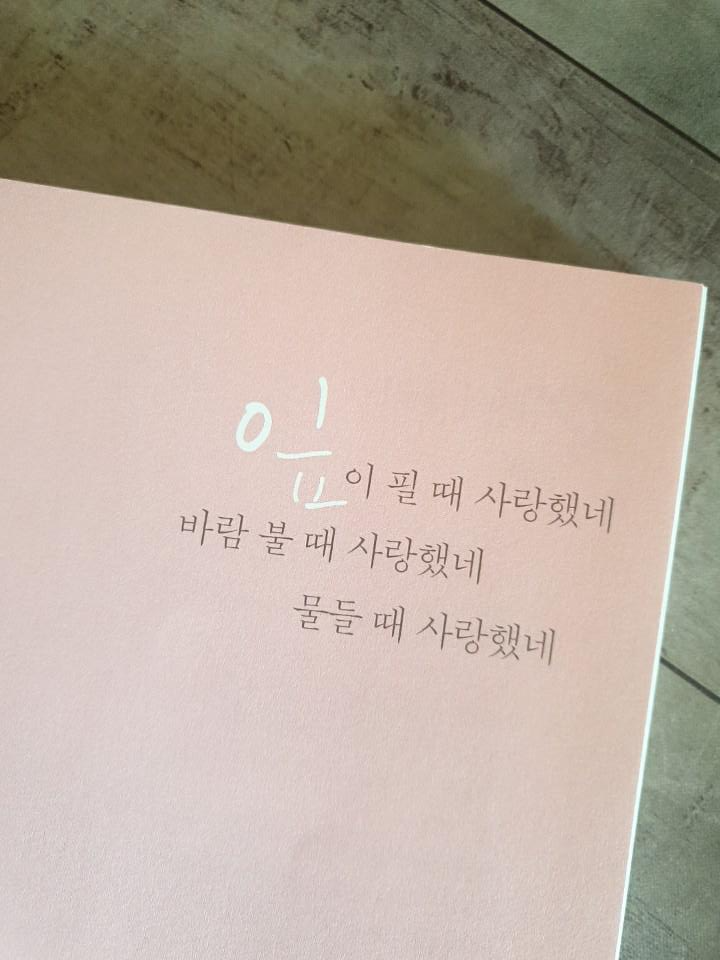 잎이 필 때 사랑했네
바람 불 때 사랑했네
물들 때 사랑했네